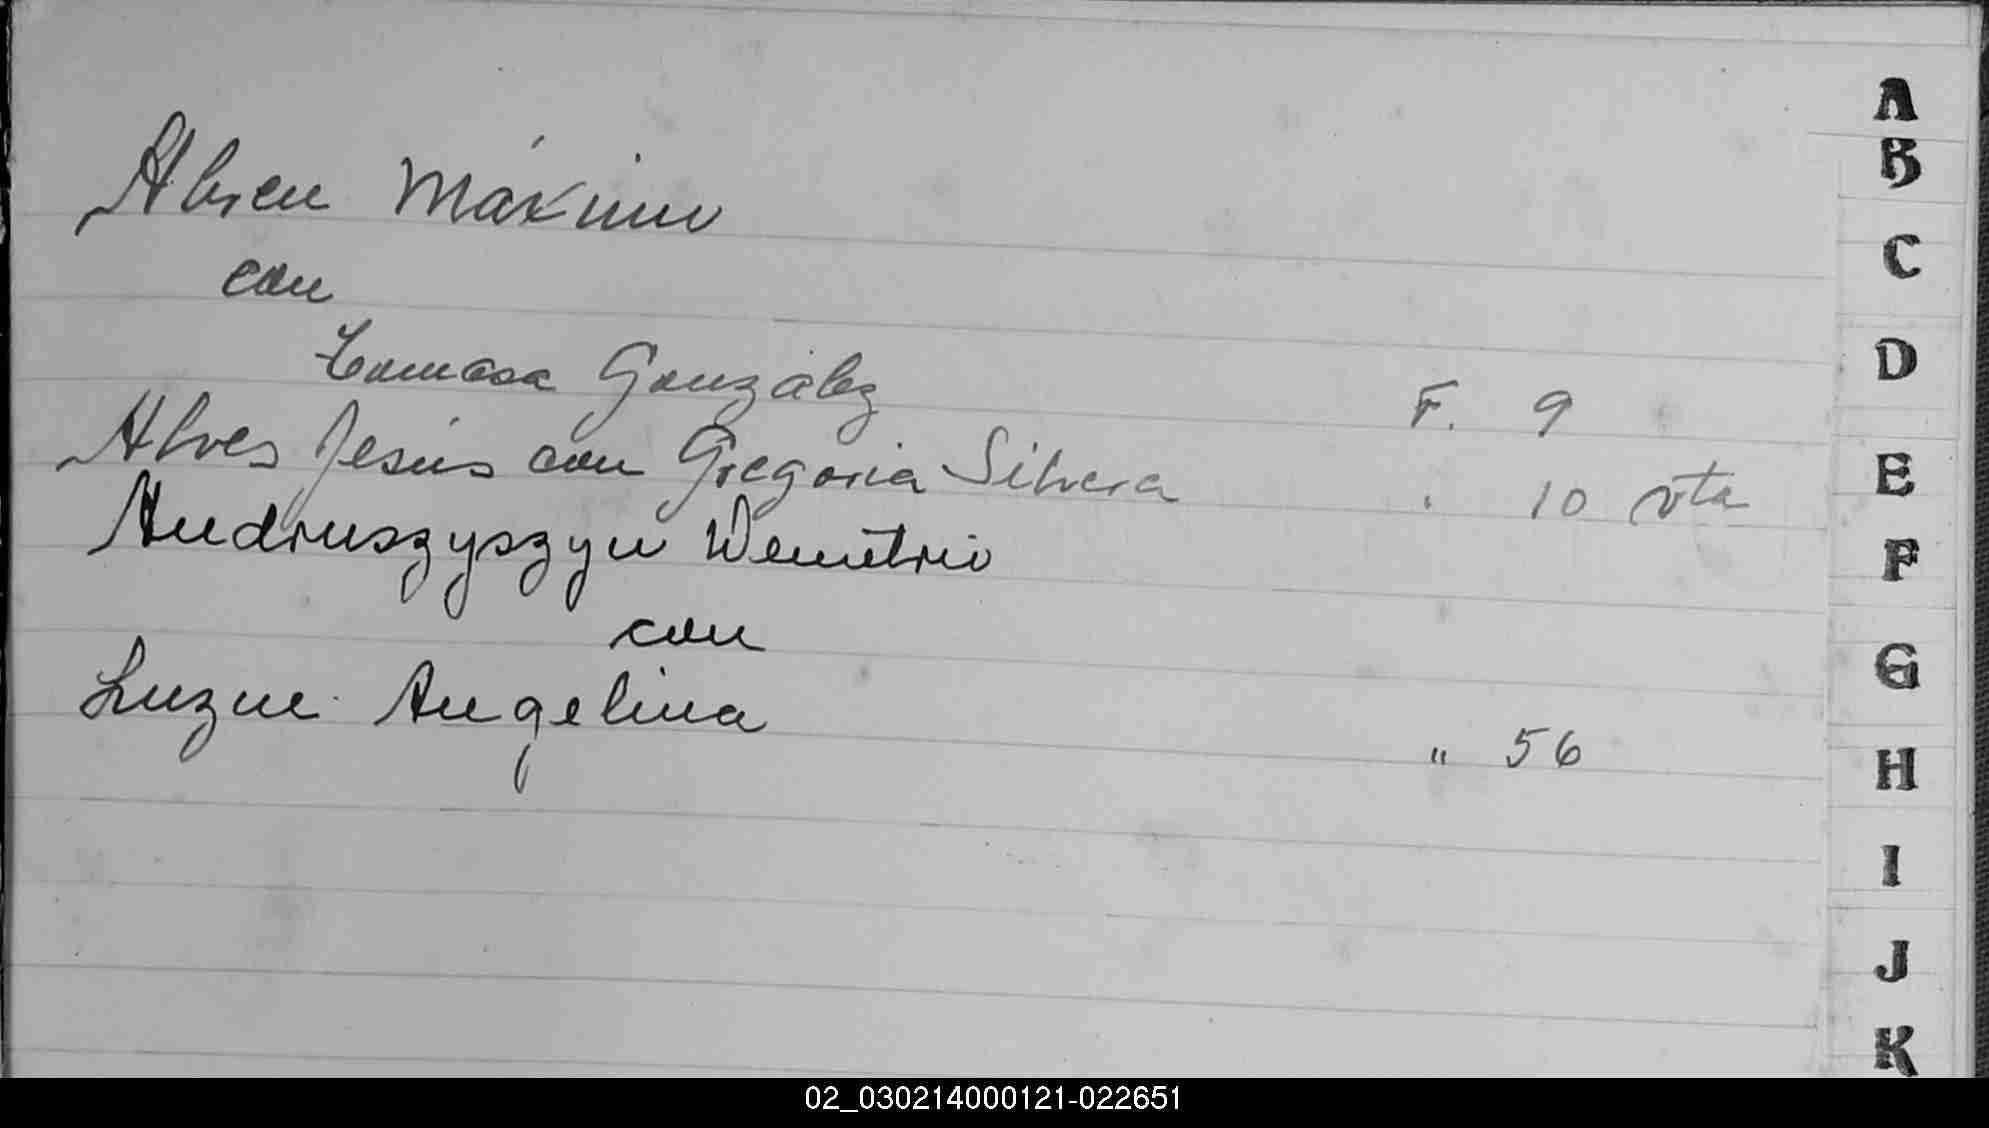 Abreu Máximo
con
Tomasa González F. 9
Alves Jesús con Gregoria Silvera " 10 vta
Andruszyszyn Demetrio
con
Luzne Angelina " 56
A
B
C
D
E
F
G
H
I
J
K
02_030214000121-022651